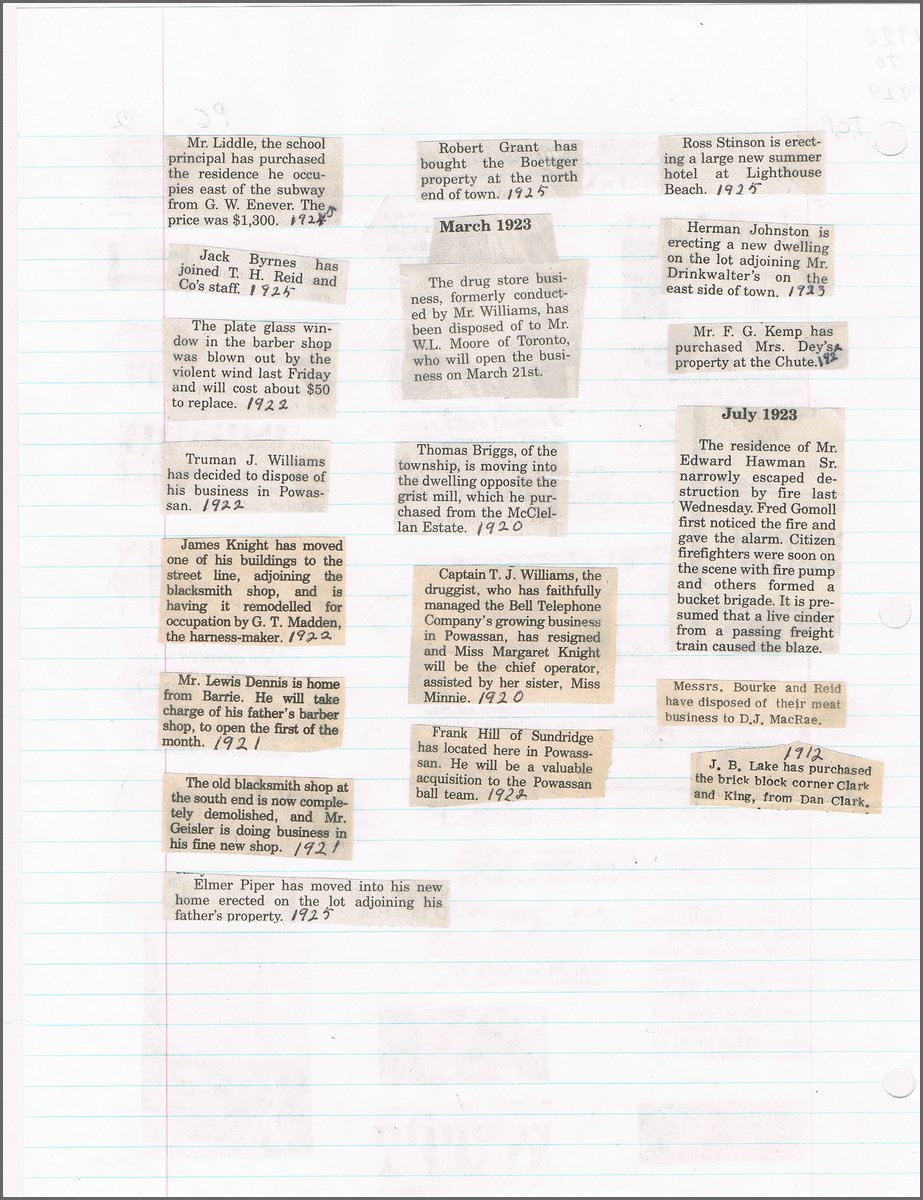 Mr. Liddle, the school
principal has purchased
the residence he occu-
pies east of the subway
from G. W. Enever. The
price was $1,300. 1925
Jack Byrnes has
joined T. H. Reid and
Co's staff. 1925
The plate glass win-
dow in the barber shop
was blown out by the
violent wind last Friday
and will cost about $50
to replace. 1922
Truman J. Williams
has decided to dispose of
his business in Powas-
san. 1922
James Knight has moved
one of his buildings to the
street line, adjoining the
blacksmith shop, and is
having it remodelled for
occupation by G. T. Madden,
the harness-maker. 1922
Mr. Lewis Dennis is home
from Barrie. He will take
charge of his father's barber
shop, to open the first of the
month. 1921
The old blacksmith shop at
the south end is now comple-
tely demolished, and Mr.
Geisler is doing business in
his fine new shop. 1921
Elmer Piper has moved into his new
home erected on the lot adjoining his
father's property. 1925
Robert Grant has
bought the Boettger
property at the north
end of town. 1925
March 1923
The drug store busi-
ness, formerly conduct-
ed by Mr. Williams, has
been disposed of to Mr.
W.L. Moore of Toronto,
who will open the busi-
ness on March 21st.
Thomas Briggs, of the
township, is moving into
the dwelling opposite the
grist mill, which he pur-
chased from the McClel-
lan Estate. 1920
Captain T. J. Williams, the
druggist, who has faithfully
managed the Bell Telephone
Company's growing business
in Powassan, has resigned
and Miss Margaret Knight
will be the chief operator,
assisted by her sister, Miss
Minnie. 1920
Frank Hill of Sundridge
has located here in Powass-
san. He will be a valuable
acquisition to the Powassan
ball team. 1922
Ross Stinson is erect-
ing a large new summer
hotel at Lighthouse
Beach. 1925
Herman Johnston is
erecting a new dwelling
on the lot adjoining Mr.
Drinkwalter's on the
east side of town. 1923
Mr. F. G. Kemp has
purchased Mrs. Dey's
property at the Chute. 192
July 1923
The residence of Mr.
Edward Hawman Sr.
narrowly escaped de-
struction by fire last
Wednesday. Fred Gomoll
first noticed the fire and
gave the alarm. Citizen
firefighters were soon on
the scene with fire pump
and others formed a
bucket brigade. It is pre-
sumed that a live cinder
from a passing freight
train caused the blaze.
Messrs. Bourke and Reid
have disposed of their meat
business to D.J. MacRae.
1912
J. B. Lake has purchased
the brick block corner Clark
and King, from Dan Clark.